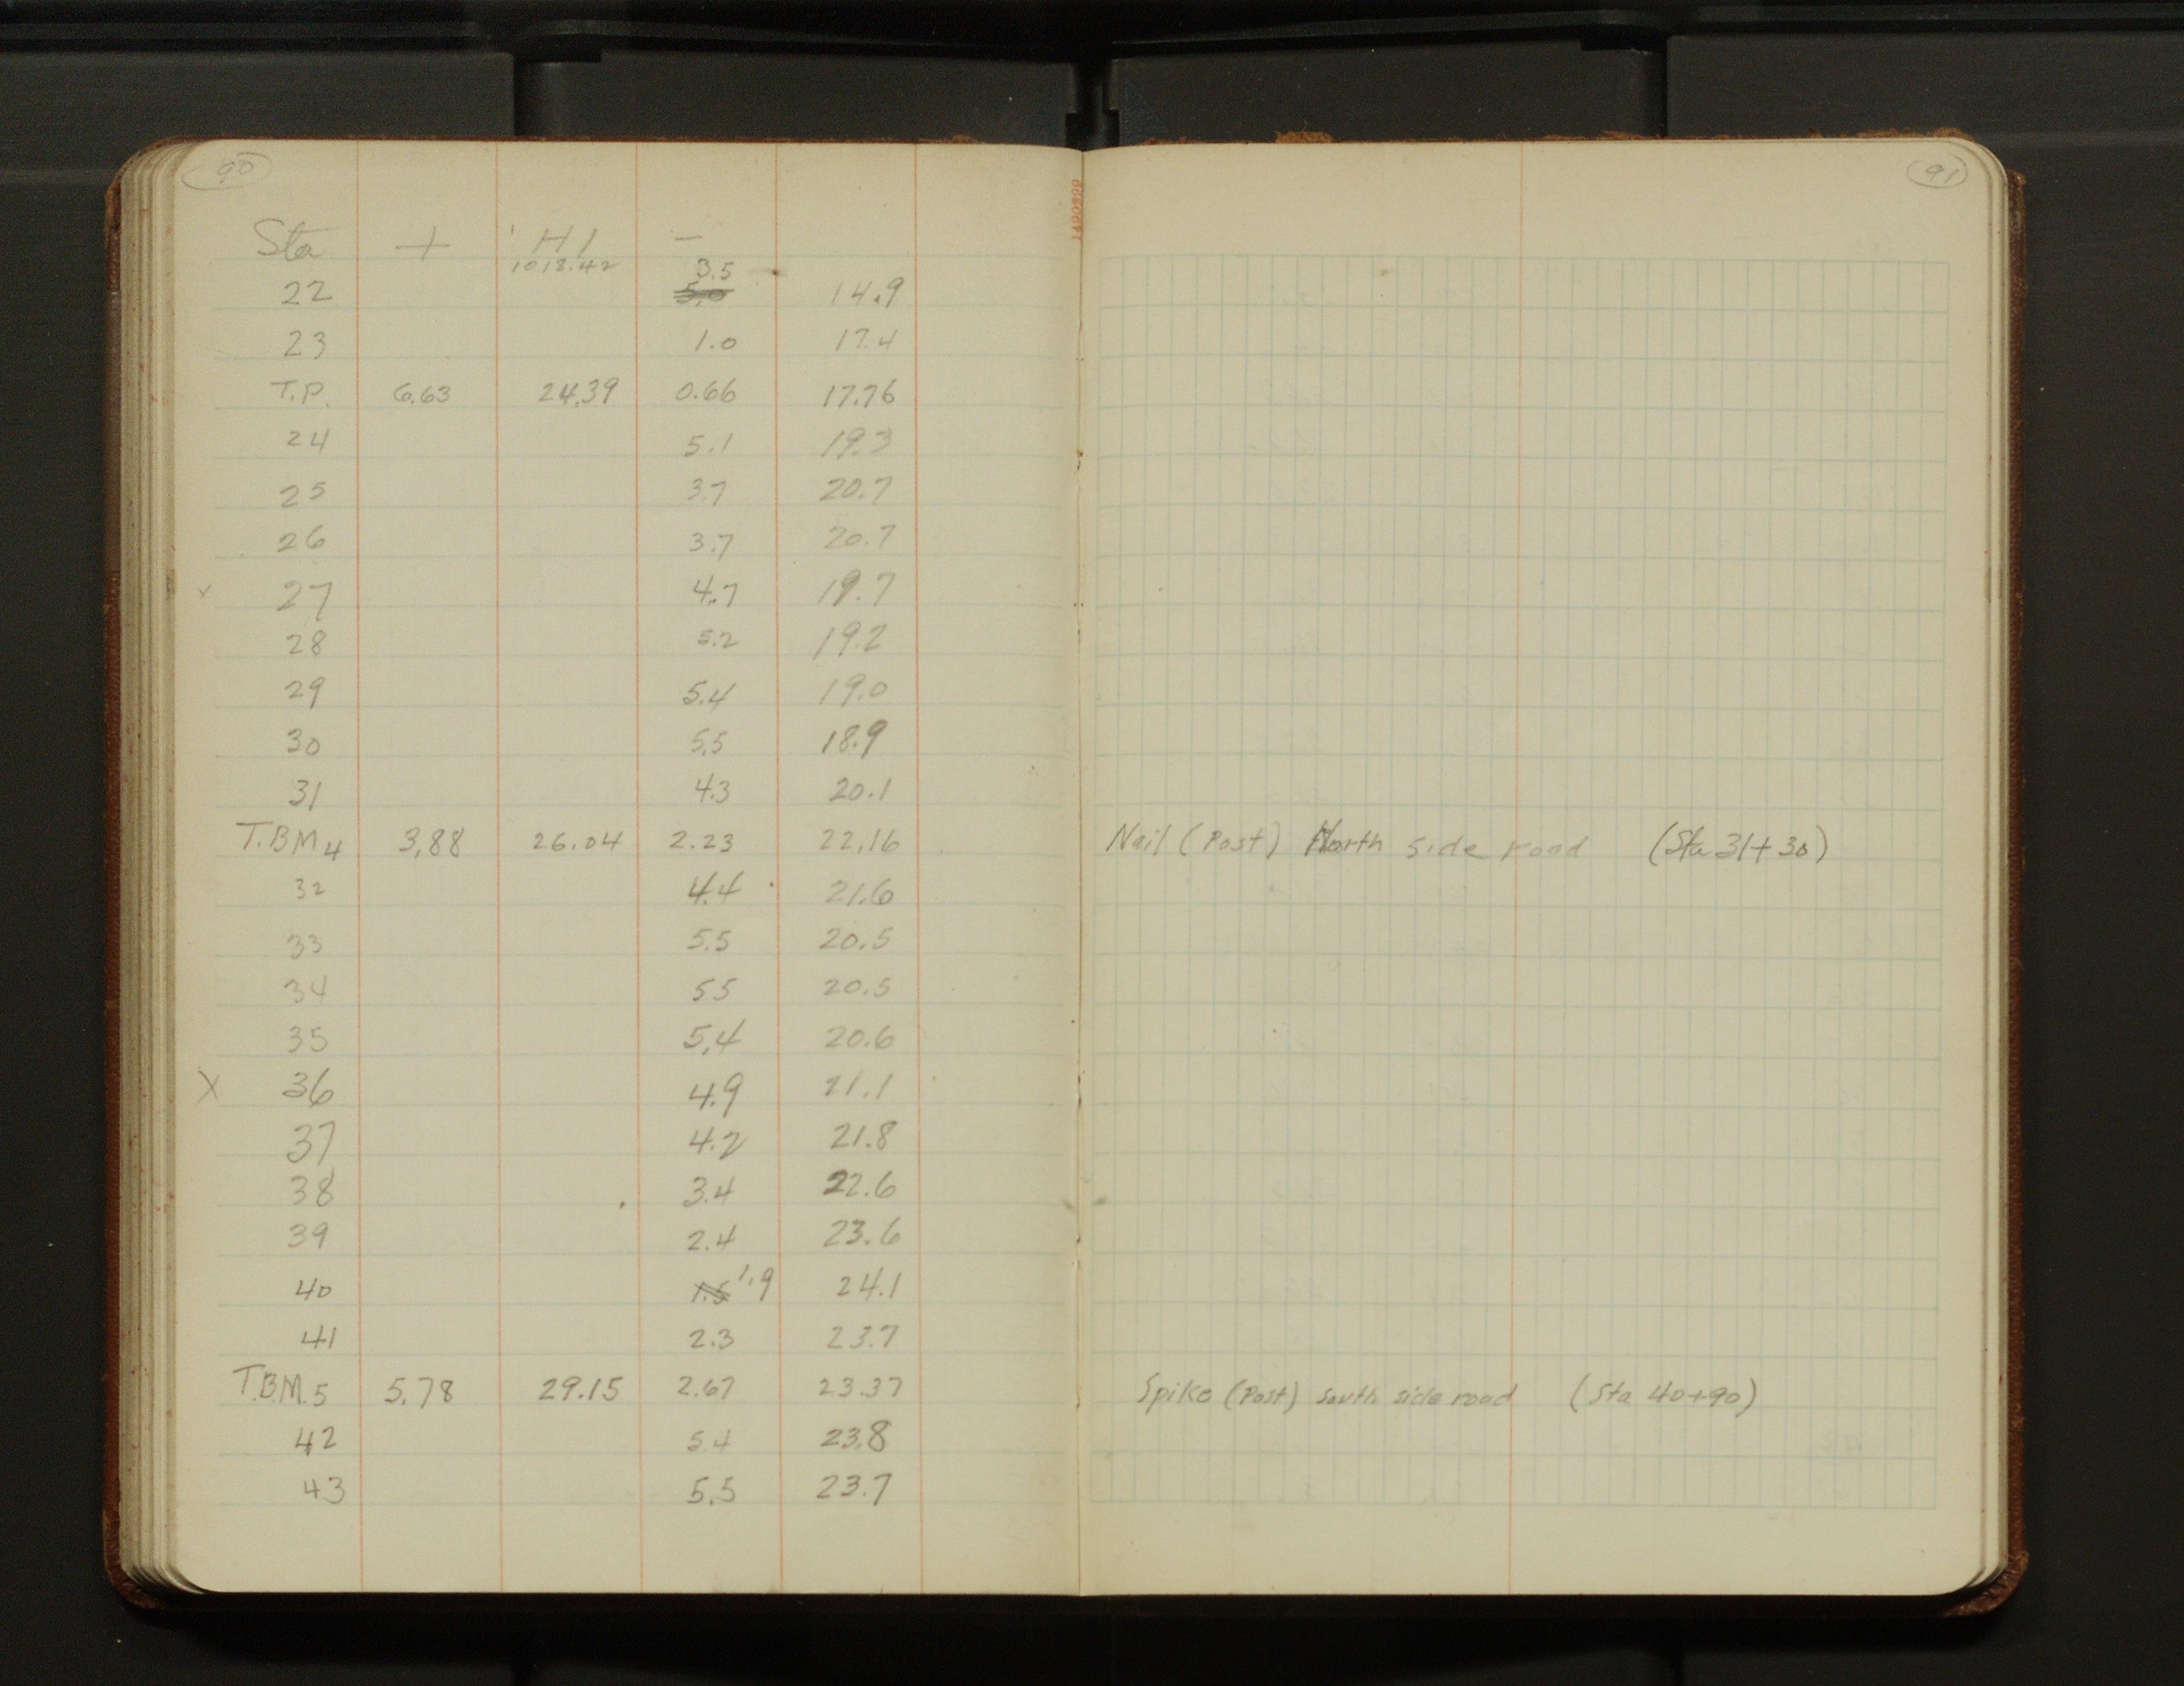 90
Sta + H I -
1018.42 3.5
22 5.0 14.9
23 1.0 17.4
T.P. 6.63 24.39 0.66 17.76
24 5.1 19.3
25 3.7 20.7
26 3.7 20.7
x 27 4.7 19.7
28 5.2 19.2
29 5.4 19.0
30 5.5 18.9
31 4.3 20.1
T.BM4 3.88 26.04 2.23 22.16
32 4.4 21.6
33 5.5 20.5
34 55 20.5
35 5.4 20.6
X 36 4.9 21.1
37 4.2 21.8
38 3.4 22.6
39 2.4 23.6
40 1.5 1.9 24.1
41 2.3 23.7
T.B.M.5 5.78 29.15 2.67 23.37
42 5.4 23.8
43 5.5 23.7
1490899
91
Nail (Post) North side road (Sta 31+30)
Spike (Post) South side road (Sta 40+90)